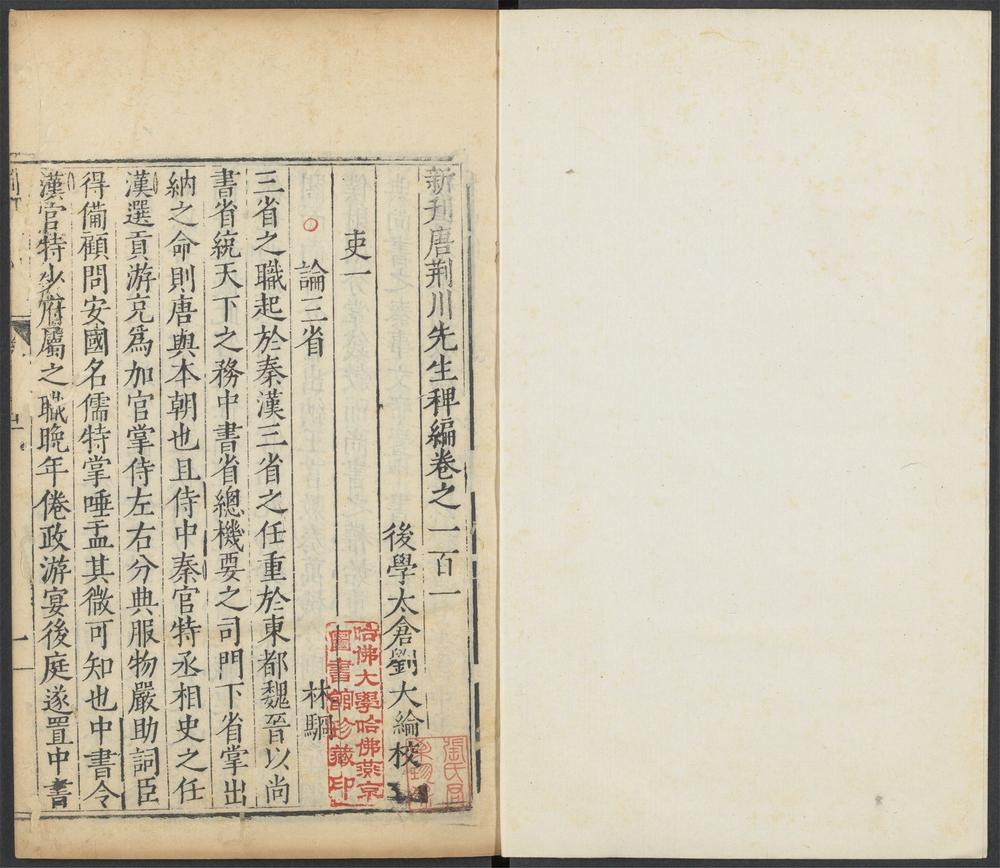 新刋唐荆川先生稗編卷之一百一
後學太倉劉大綸校
吏一
論三省
林駉
三省之職起於秦漢三省之任重於東都魏晉以尚
書省統天下之務中書省總機要之司門下省掌出
納之命則唐與本朝也且侍中秦官特丞相史之任
漢選貢游充爲加官掌侍左右分典服物嚴助詞臣
得備顧問安國名儒特掌唾盂其微可知也中書令
漢官特少府屬之職晚年倦政游宴後庭遂置中書
哈佛大學哈佛燕京
圖書館珍藏印